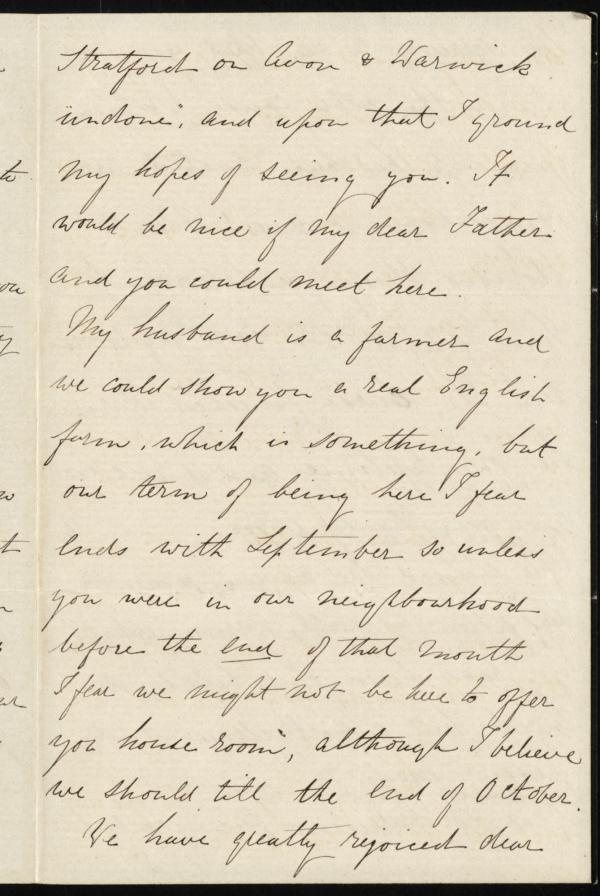 Stratford on Avon & Warwick
undone", and upon that I ground
my hopes of seeing you. It
would be nice if my dear Father
and you could meet here.
My husband is a farmer and
we could show you a real English
farm, which is something, but
our term of being here I fear
ends with September so unless
you were in our neighbourhood
before the end of that month
I fear we might not be here to offer
you house room", although I believe
we should till the end of October.
We have greatly rejoiced dear